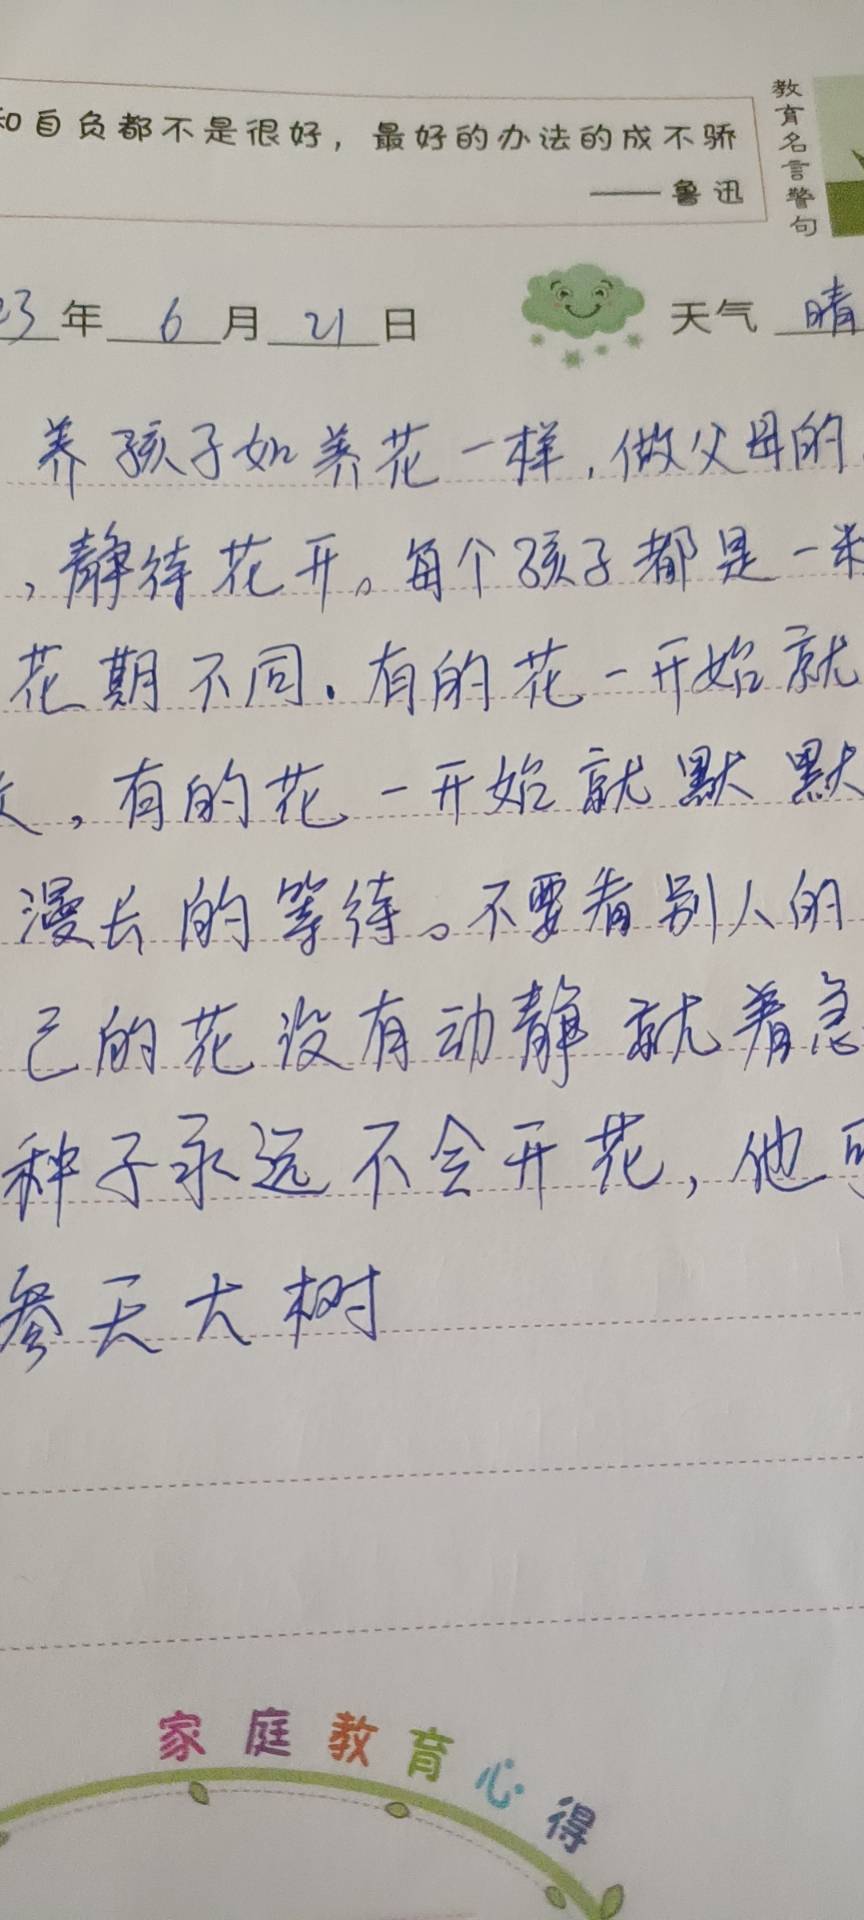 和自负都不是很好，最好的办法的成不骄
——鲁迅
教育名言警句
23年6月21日
天气 晴
养孩子如养花一样，做父母的
，静待花开。每个孩子都是一
花期不同．有的花一开始就
，有的花一开始就默默
漫长的等待。不要看别人的
己的花没有动静就着急
种子永远不会开花，他
参天大树
家庭教育心得